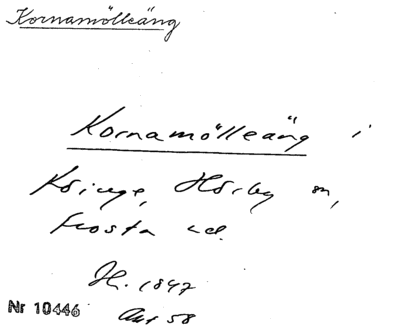 Kornamölleäng
Kornamölleäng i
Köinge, Hörby sn,
Frosta hd.
H. 1847
Avt 58
Nr 10446